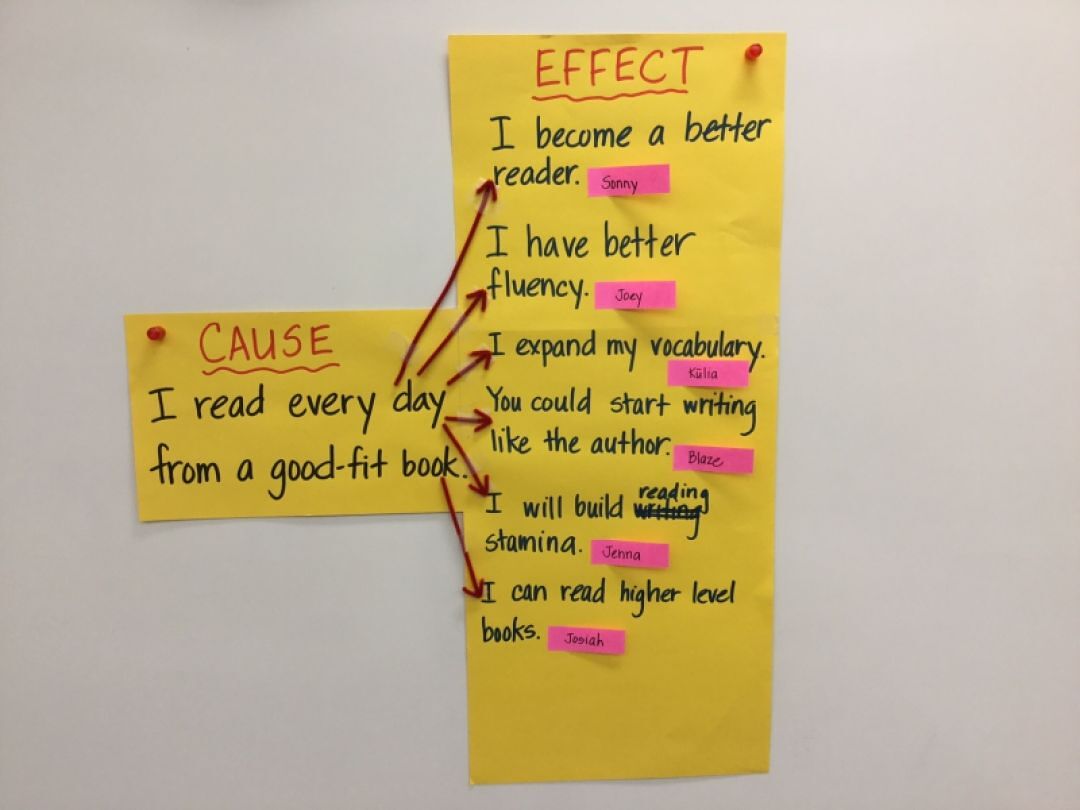 CAUSE
I read every day
from a good-fit book.
EFFECT
I become a better
reader. Sonny
I have better
fluency. Joey
I expand my vocabulary.
Kūlia
You could start writing
like the author. Blaze
reading
I will build writing
stamina. Jenna
I can read higher level
books. Josiah